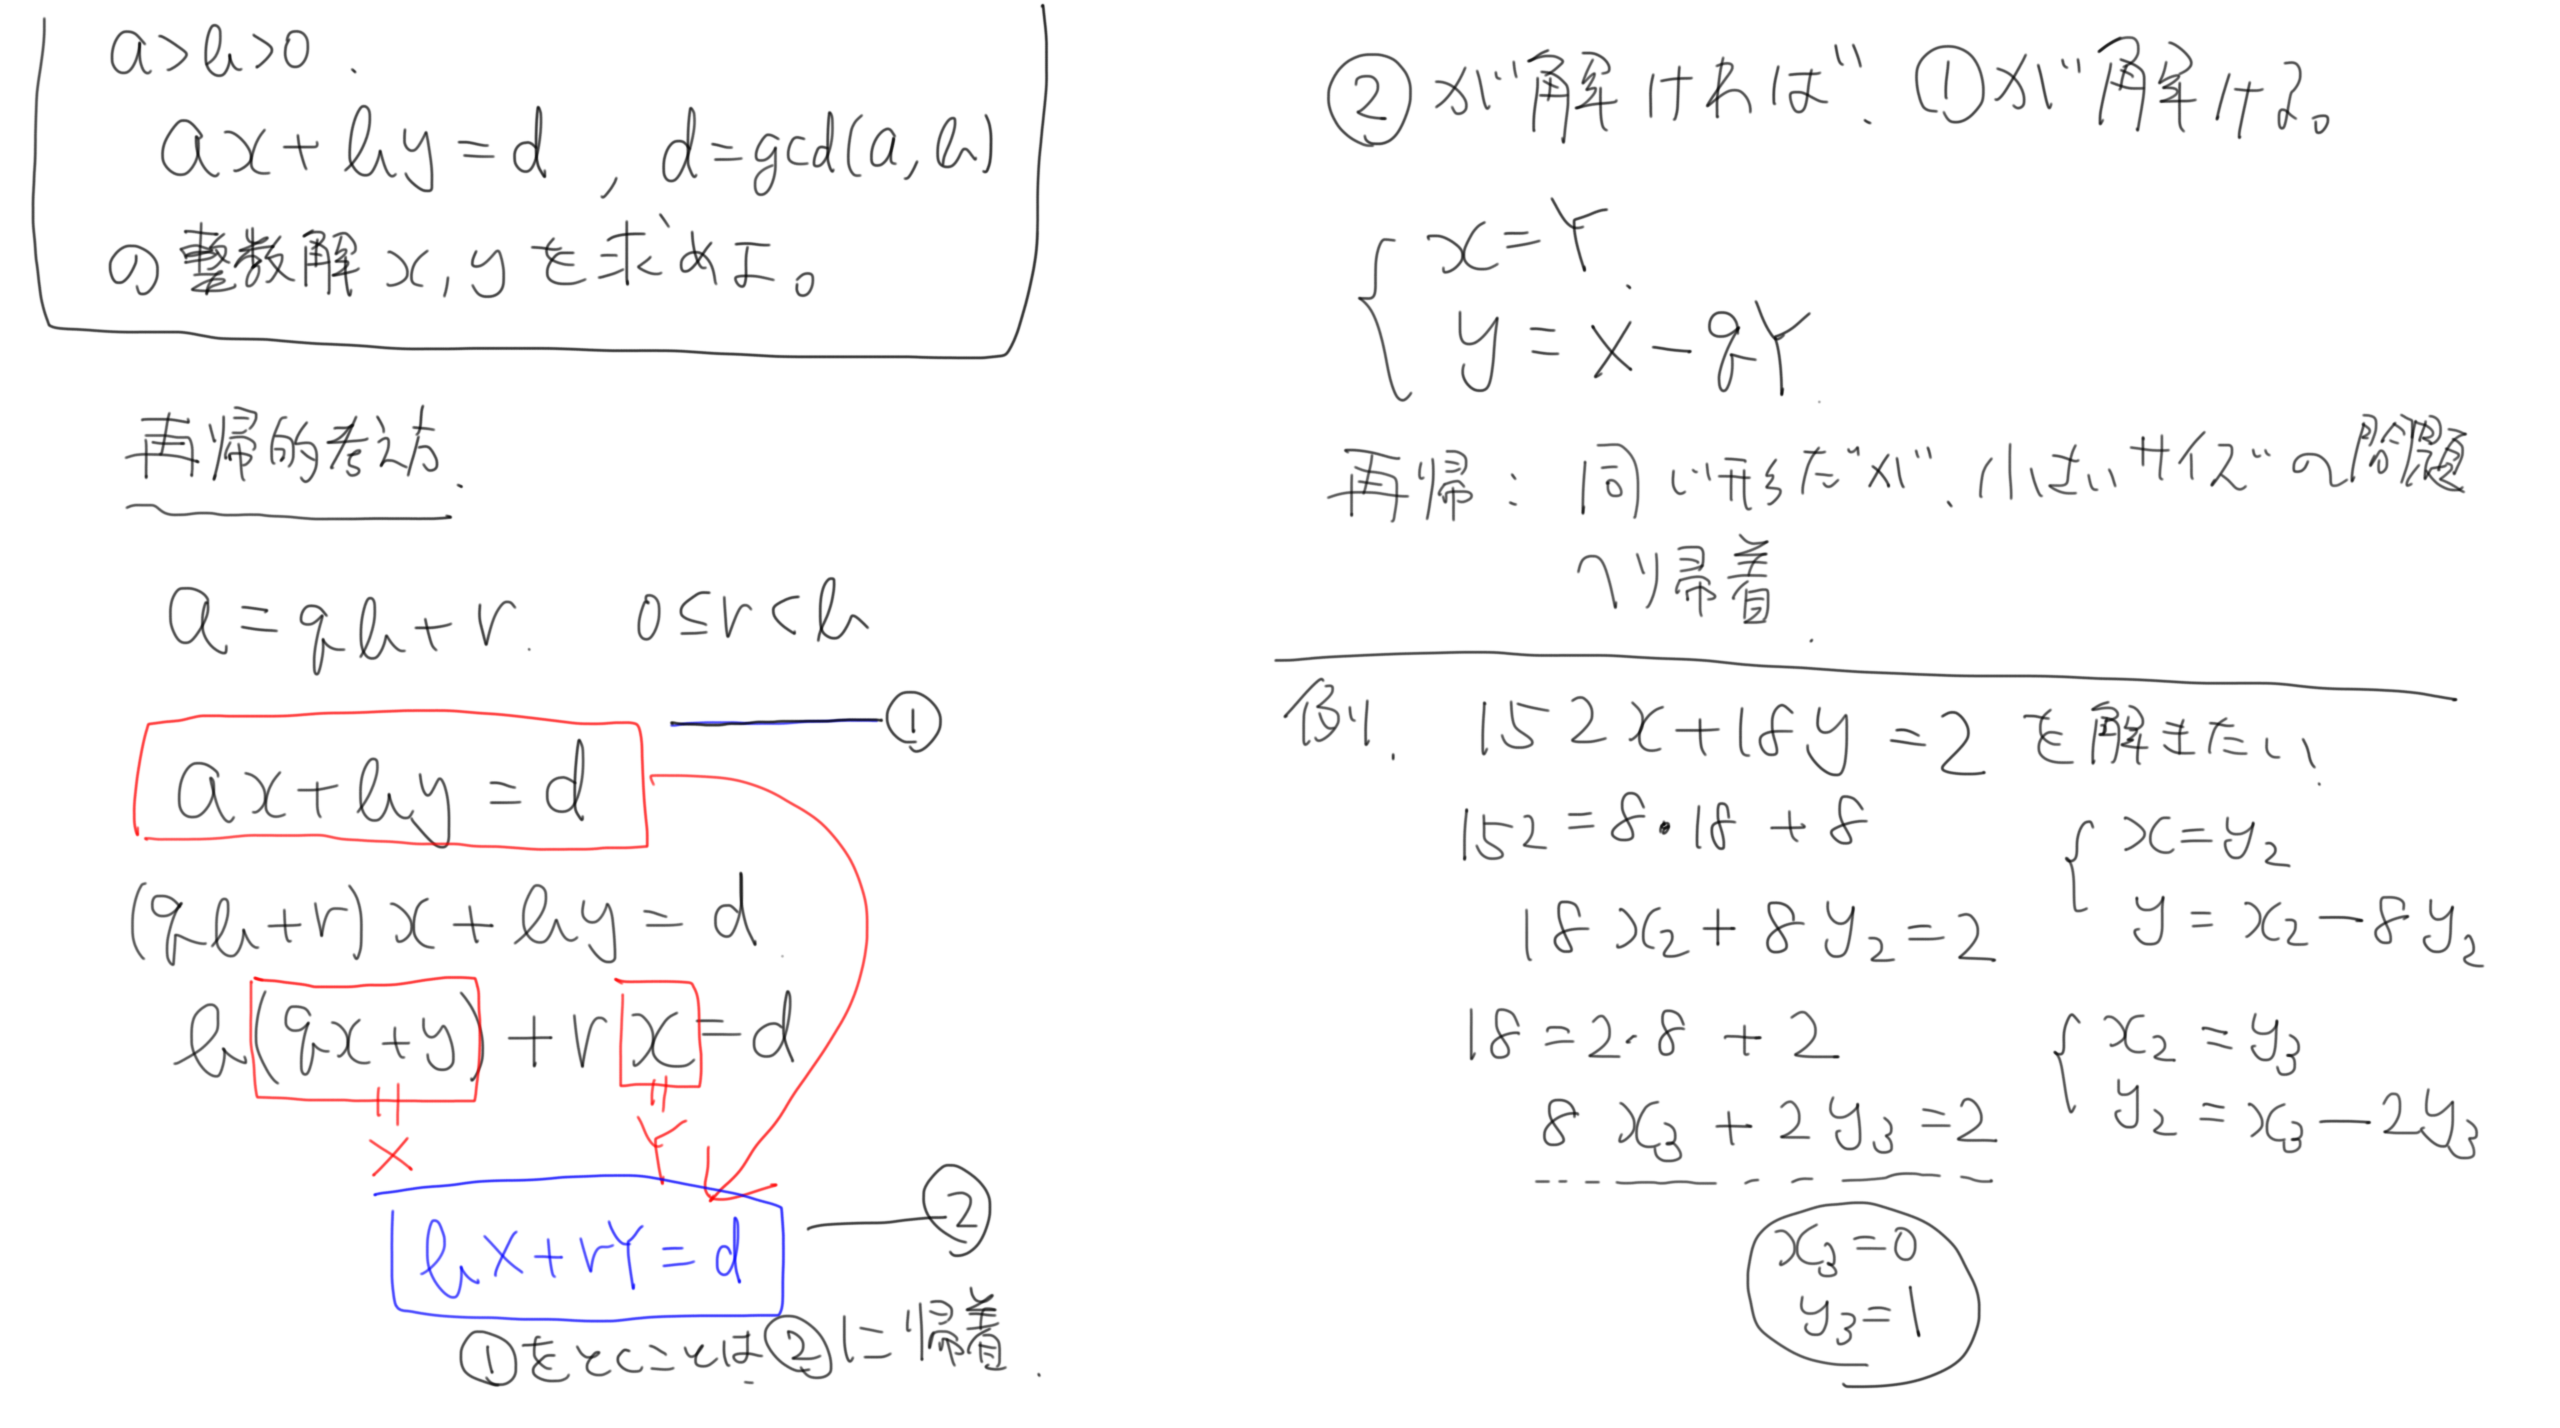 a>b>0.
ax+by=d, d=gcd(a,b)
の整数解x,yを求めよ。
再帰的考え方.
a=qb+r. 0≤r<b
ax+by=d ①
(qb+r)x+by=d.
b(qx+y)+rx=d
= =
X Y
bX+rY=d ②
①をとくことは②に帰着.
②が解ければ、①が解ける。
{ x=Y.
y=X-qY.
再帰:同じ形だが、小さいサイズの問題
へ帰着.
例. 152x+18y=2を解きたい.
152=8・18+8
{ x=y₂
y=x₂-8y₂
18x₂+8y₂=2
18=2・8+2
{ x₂=y₃
y₂=x₃-2y₃
8x₃+2y₃=2
x₃=0
y₃=1